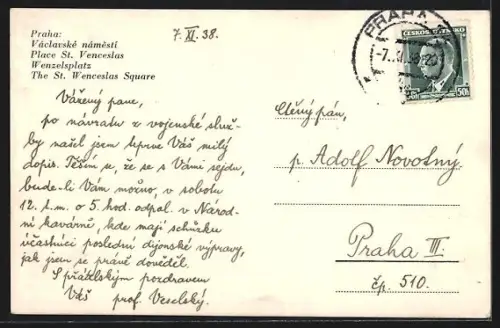 Praha:
Václavské náměstí
Place St. Venceslas
Wenzelsplatz
The St. Wenceslas Square
7. XI. 38.
PRAHA
-7. XI. 38
ČESKOSLOVENSKO
50h
Vážený pane,
po návratu z vojenské služ-
by našel jsem teprve Váš milý
dopis. Těším se, že se s Vámi sejdu,
bude-li Vám možno v sobotu
12. t. m. o 5. hod. odpol. v Národ-
ní kavárně, kde mají schůzku
účastníci poslední dijonské výpravy,
jak jsem se právě dověděl.
S přátelským pozdravem
Váš prof. Veselský.
Ctěný pán,
p. Adolf Novotný
Praha III.
čp. 510.